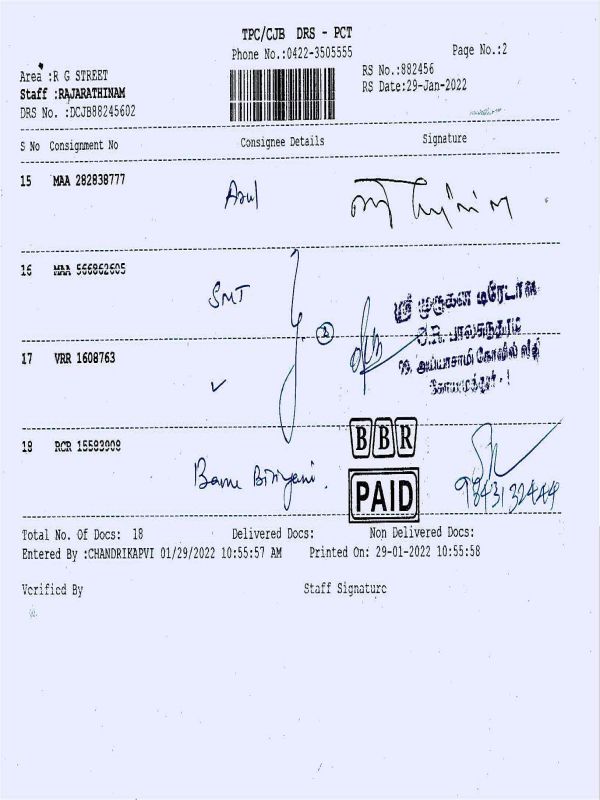 TPC/CJB DRS - PCT
Phone No.:0422-3505555 Page No.:2
Area :R G STREET RS No.:882456
Staff :RAJARATHINAM RS Date:29-Jan-2022
DRS No. :DCJB88245602
S No Consignment No Consignee Details Signature
15 MAA 282838777 Arul
16 MAA 566862605 SMT
2
ஸ்ரீ முருகன் டிரேடர்ஸ்
17 VRR 1608763
கோயமுத்தூர் - 1
18 RCR 15583908
BBR
PAID
9843132444
Total No. Of Docs: 18 Delivered Docs: Non Delivered Docs:
Entered By :CHANDRIKAPVI 01/29/2022 10:55:57 AM Printed On: 29-01-2022 10:55:58
Verified By Staff Signature